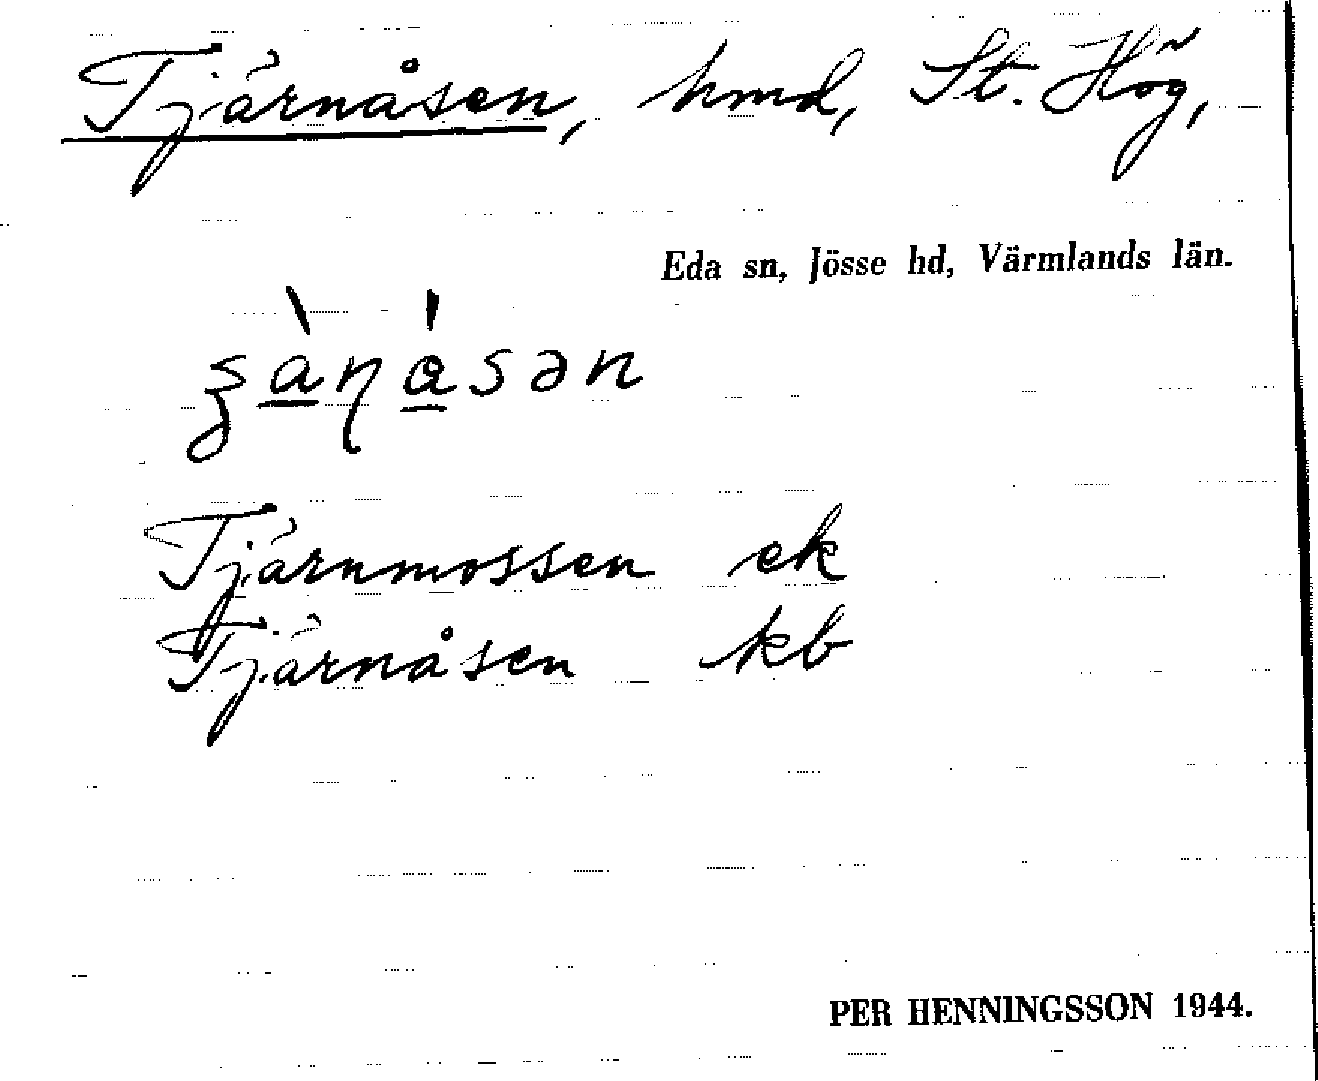 Tjärnåsen, hmd, St. Hög,
Eda sn, Jösse hd, Värmlands län.
Tjärnmossen ek
Tjärnåsen kb
PER HENNINGSSON 1944.